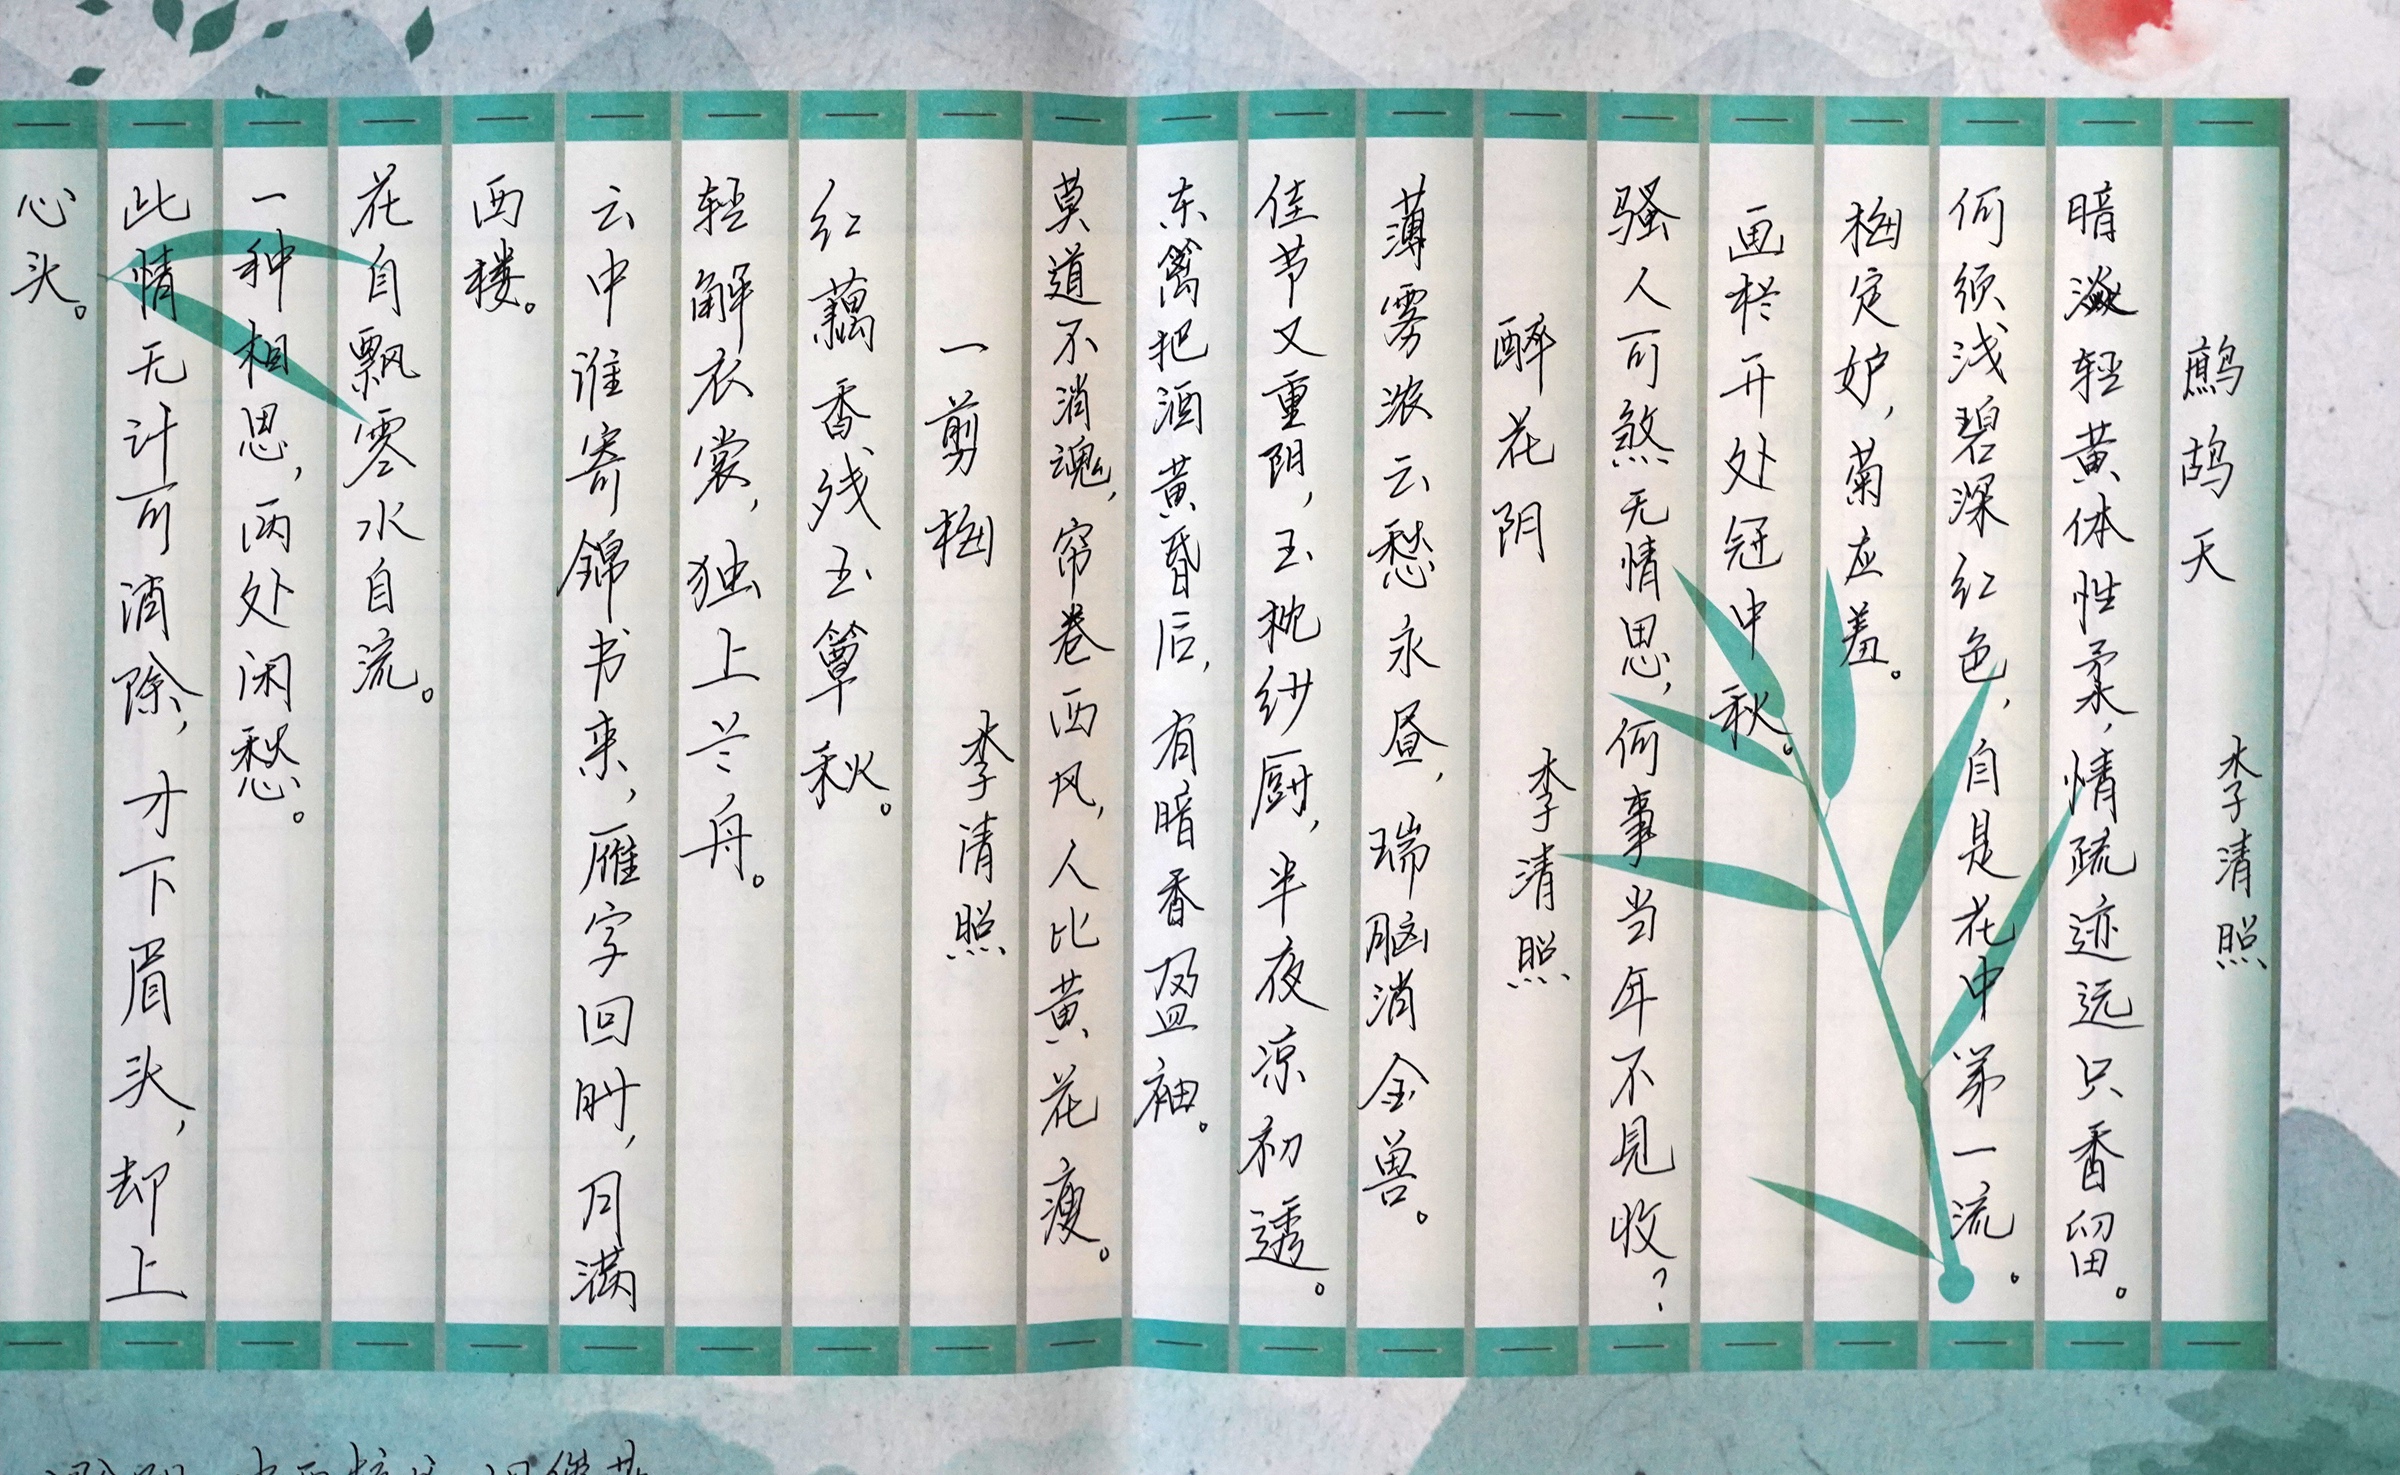 鹧鸪天 李清照
暗淡轻黄体性柔，情疏迹远只香留。
何须浅碧深红色，自是花中第一流。
梅定妒，菊应羞。
画栏开处冠中秋。
骚人可煞无情思，何事当年不见收？
醉花阴 李清照
薄雾浓云愁永昼，瑞脑消金兽。
佳节又重阳，玉枕纱厨，半夜凉初透。
东篱把酒黄昏后，有暗香盈袖。
莫道不消魂，帘卷西风，人比黄花瘦。
一剪梅 李清照
红藕香残玉簟秋。
轻解衣裳，独上兰舟。
云中谁寄锦书来，雁字回时，月满
西楼。
花自飘零水自流。
一种相思，两处闲愁。
此情无计可消除，才下眉头，却上
心头。